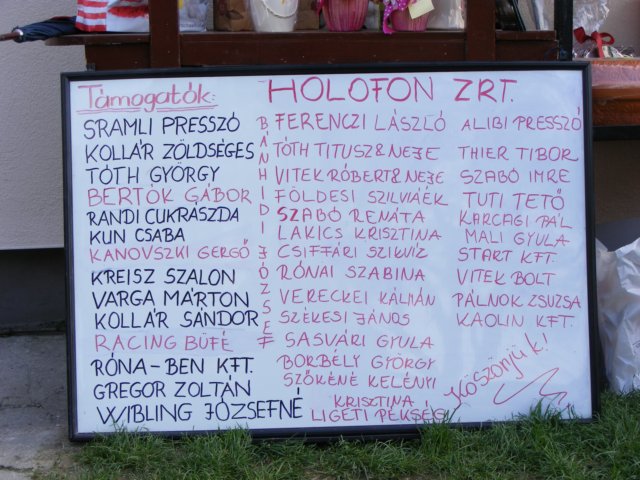 Támogatók:
HOLOFON ZRT.
SRAMLI PRESSZÓ
KOLLÁR ZÖLDSÉGES
TÓTH GYÖRGY
BERTÓK GÁBOR
RANDI CUKRÁSZDA
KUN CSABA
KANOVSZKI GERGŐ
KREISZ SZALON
VARGA MÁRTON
KOLLÁR SÁNDOR
RACING BÜFÉ
RÓNA-BEN KFT.
GREGOR ZOLTÁN
WIBLING JÓZSEFNÉ
BÁNHIDI JÓZSEF
FERENCZI LÁSZLÓ
TÓTH TITUSZ & NEJE
VITEK RÓBERT & NEJE
FÖLDESI SZILVIÁÉK
SZABÓ RENÁTA
LAKICS KRISZTINA
CSIFFÁRI SZIKVÍZ
RÓNAI SZABINA
VERECKEI KÁLMÁN
SZÉKESI JÁNOS
SASVÁRI GYULA
BORBÉLY GYÖRGY
SZŐKÉNÉ KELÉNYI
KRISZTINA
LIGETI PÉKSÉG
ALIBI PRESSZÓ
THIER TIBOR
SZABÓ IMRE
TUTI TETŐ
KARCAGI PÁL
MALI GYULA
START KFT.
VITEK BOLT
PÁLNOK ZSUZSA
KAOLIN KFT.
Köszönjük!